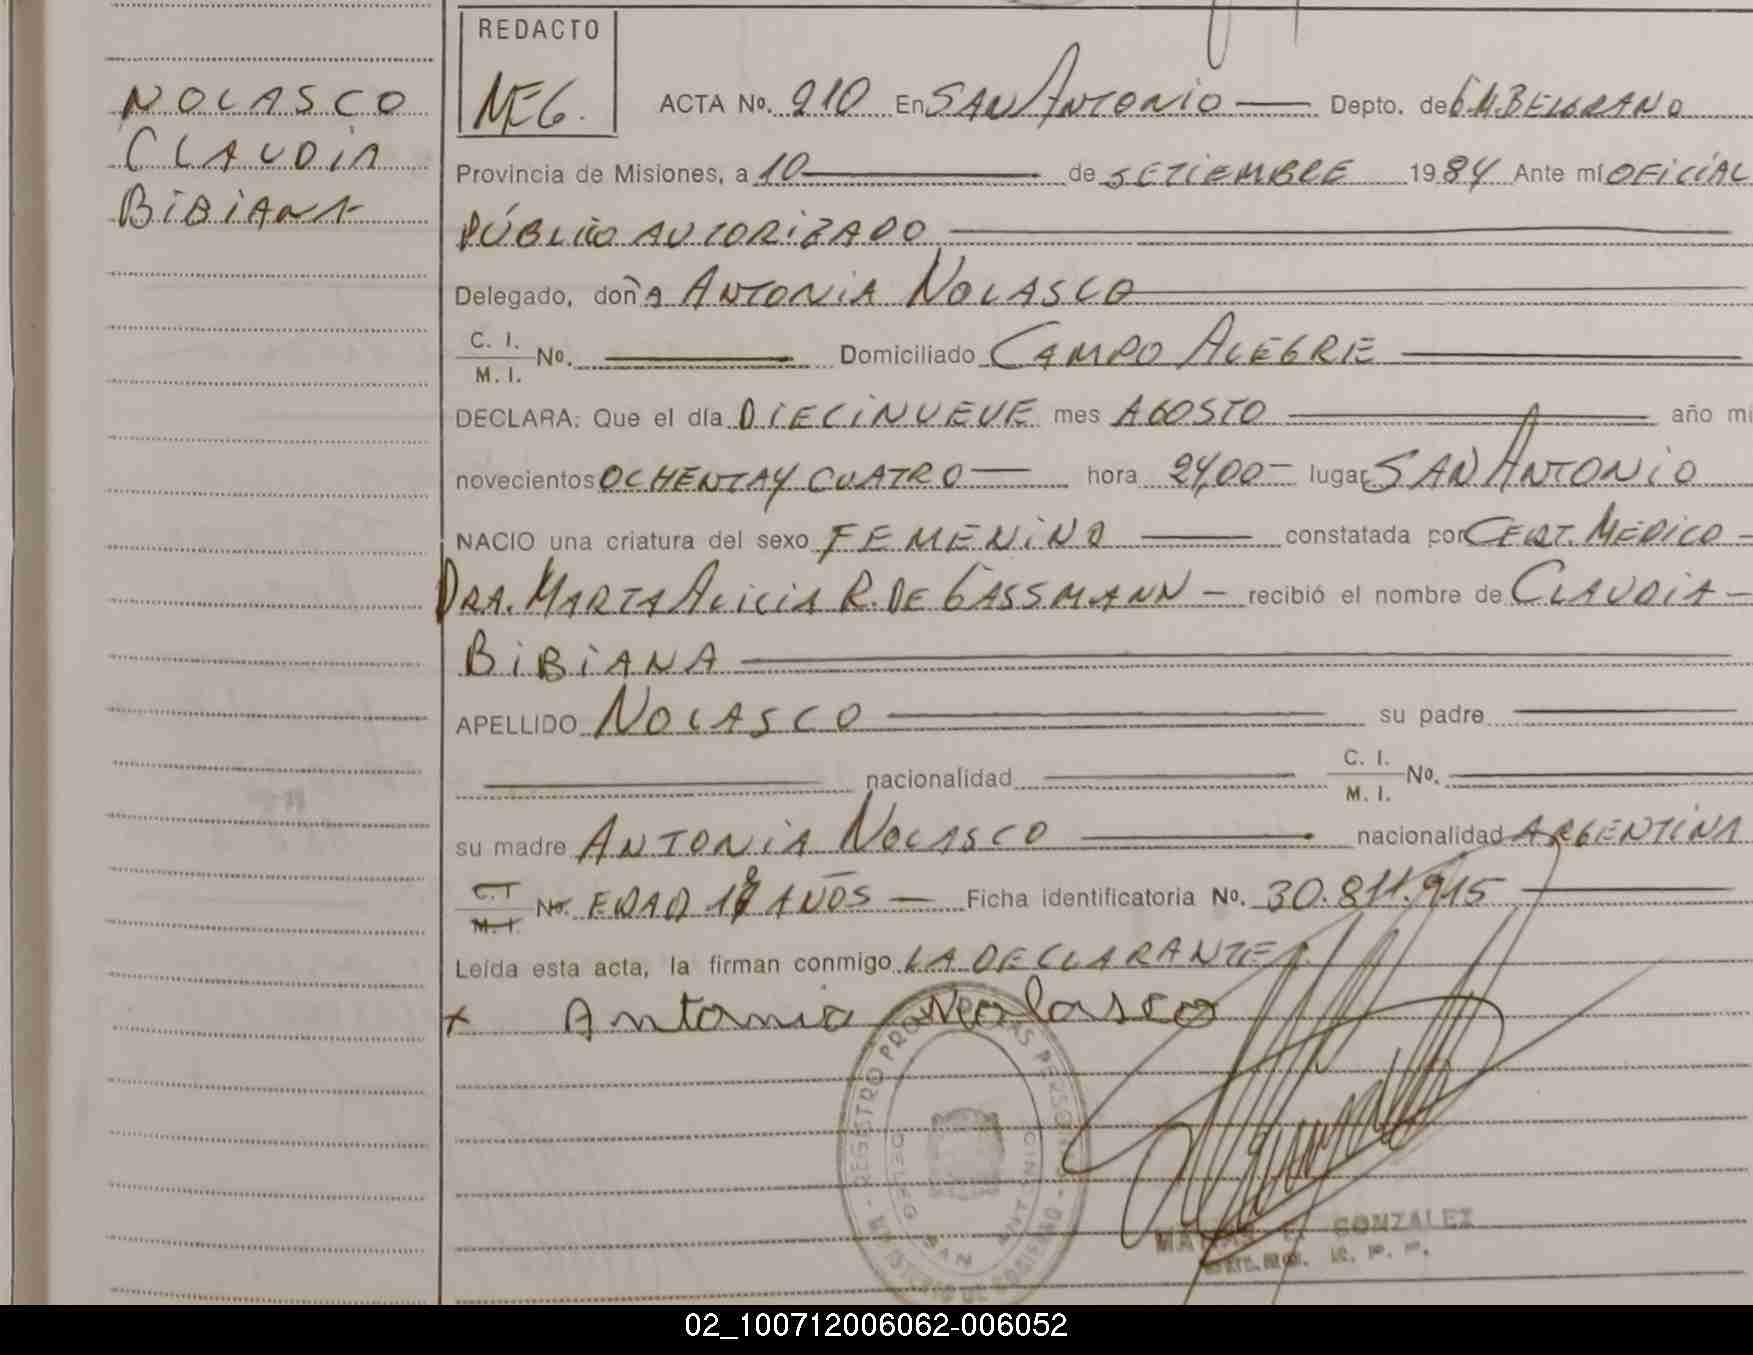 NOLASCO
CLAUDIA
BIBIANA
REDACTO
NEG.
ACTA No. 210 En SAN ANTONIO Depto. de G.M.BELGRANO
Provincia de Misiones, a 10 de SETIEMBRE 1984 Ante mí OFICIAL
PÚBLICO AUTORIZADO
Delegado, doña ANTONIA NOLASCO
C. I.
M. I. No. Domiciliado CAMPO ALEGRE
DECLARA: Que el día DIECINUEVE mes AGOSTO año mi
novecientos OCHENTA Y CUATRO hora 24,00 lugar SAN ANTONIO
NACIO una criatura del sexo FEMENINO constatada por CERT. MEDICO
DRA. MARTA ALICIA R. DE GASSMANN - recibió el nombre de CLAUDIA
BIBIANA
APELLIDO NOLASCO su padre
nacionalidad C. I.
M. I. No.
su madre ANTONIA NOLASCO nacionalidad ARGENTINA
C. I.
M. I. No. EDAD AÑOS Ficha identificatoria No. 30.811.915
Leída esta acta, la firman conmigo LA DECLARANTE
x Antonia Nolasco
GONZALEZ
02_100712006062-006052